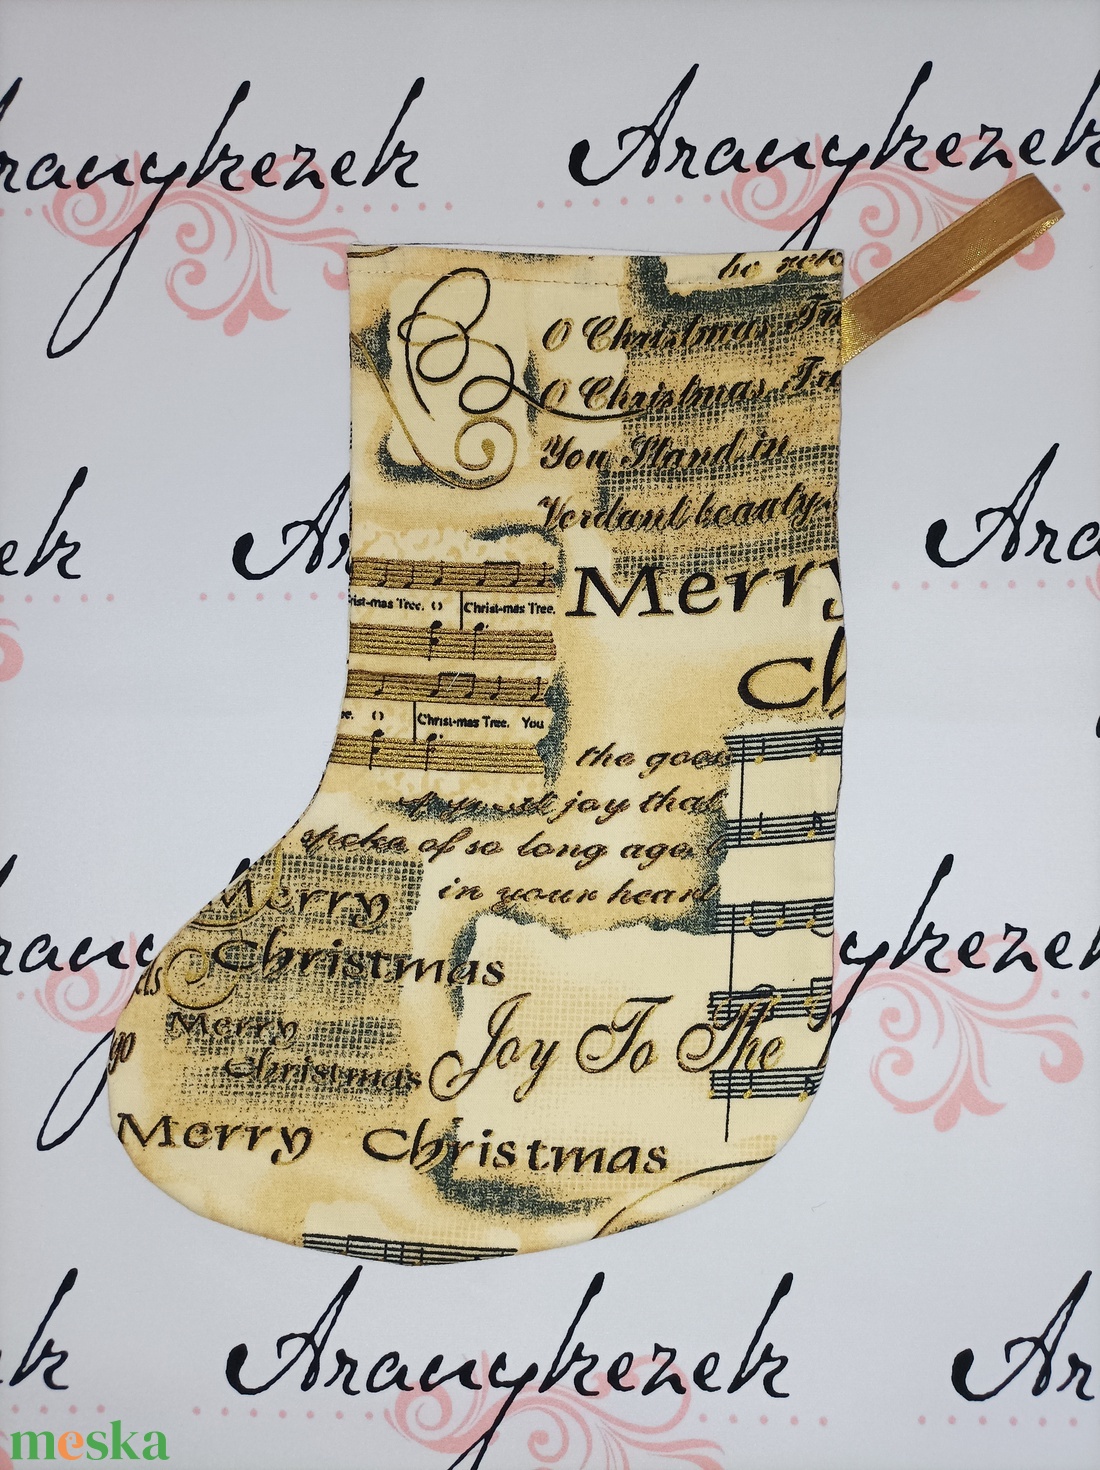 Aranykezek
Aranykezek
O Christmas
O Christmas
You Stand in
Verdant beauty
Merry
Ch
ist-mas Tree. O Christ-mas Tree.
O Christ-mas Tree. You
the good
joy that
spoke of so long ago
in your heart
Merry
Christmas
Merry
Christmas
Joy To The
Merry Christmas
Aranykezek
Ar
meska